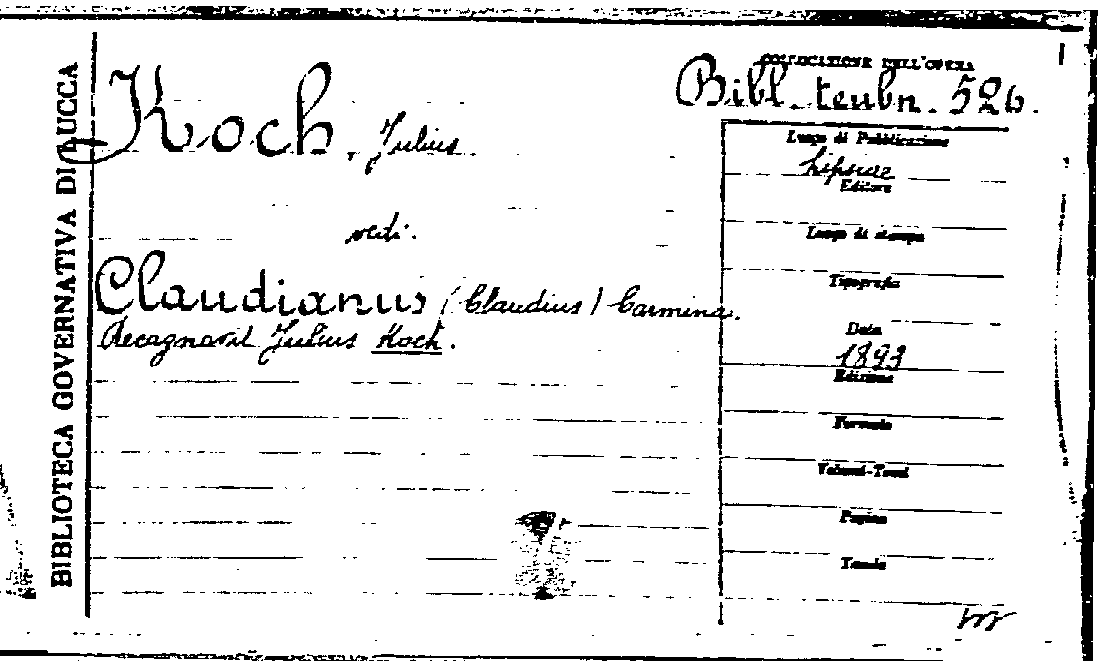 BIBLIOTECA GOVERNATIVA DI LUCCA
Koch, Julius.
vedi.
Claudianus (Claudius) Carmina.
Recognovit Julius Koch.
COLLOCAZIONE DELL'OPERA
Bibl. teubn. 526.
Luogo di Pubblicazione
Lipsiae
Editore
Luogo di stampa
Tipografia
Data
1893
Edizione
Formato
Volumi-Tomi
Pagine
Tavole